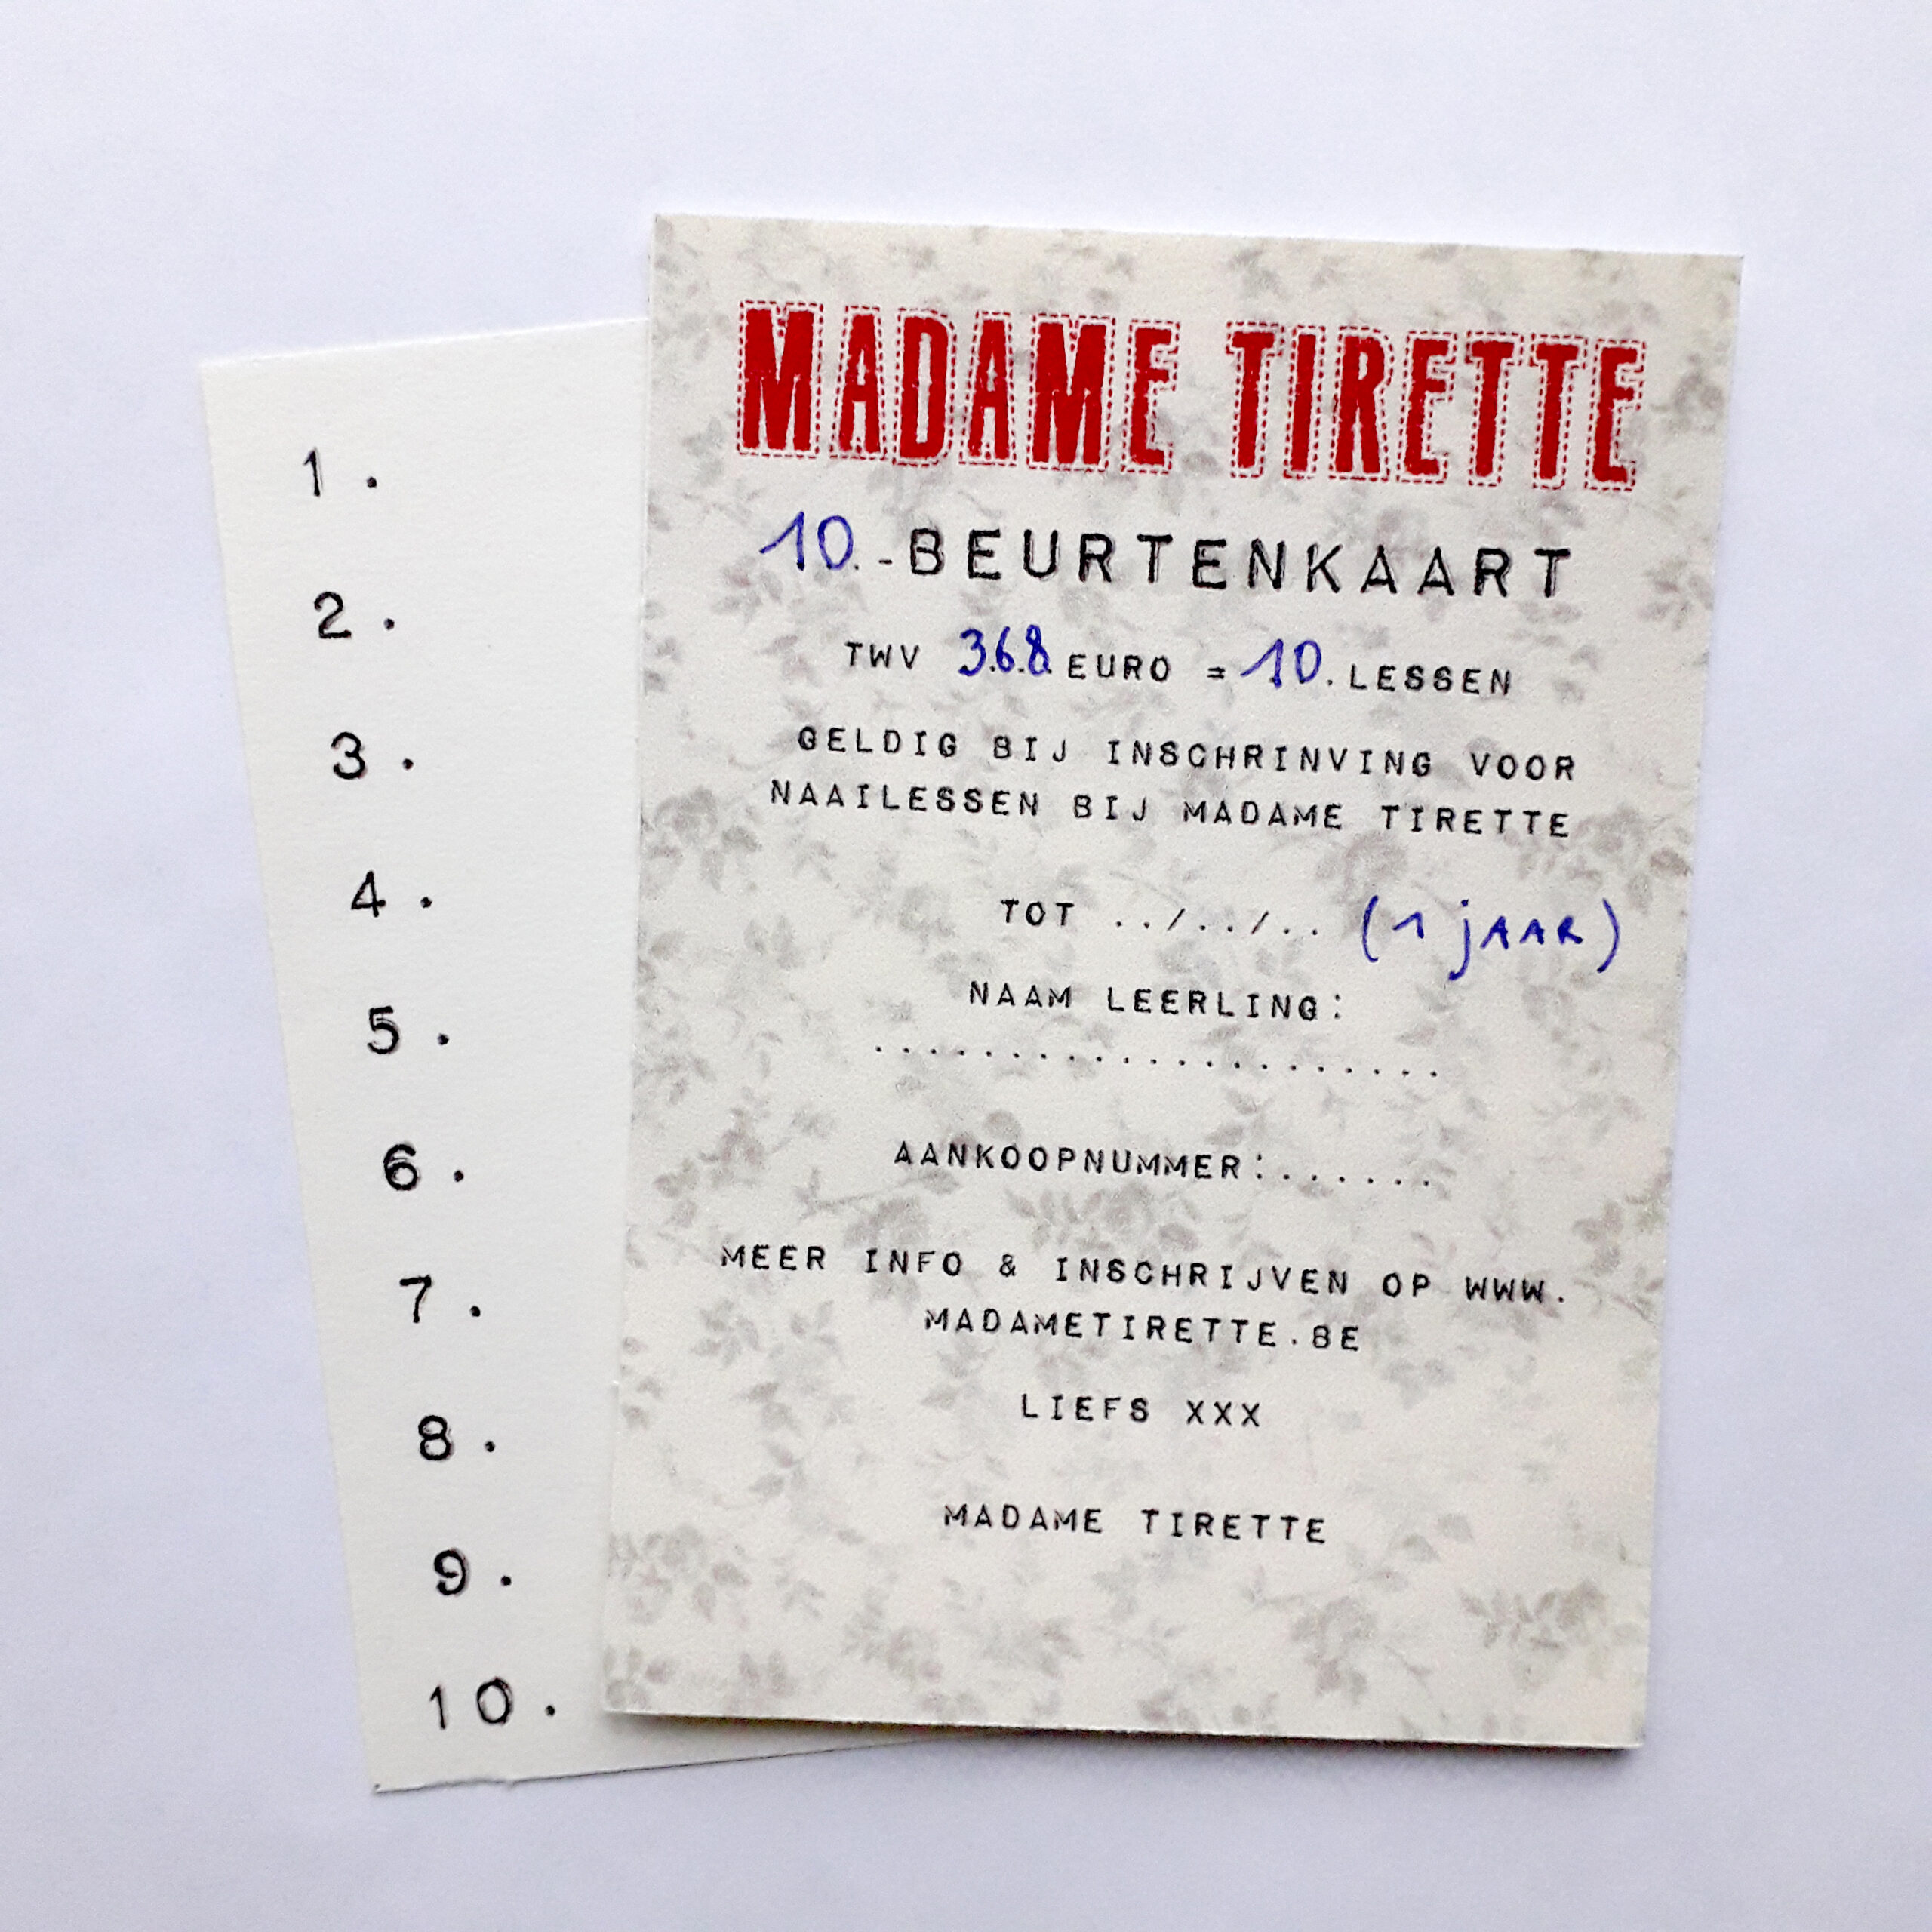 1.
2.
3.
4.
5.
6.
7.
8.
9.
10.
MADAME TIRETTE
10.-BEURTENKAART
TWV 368 EURO = 10. LESSEN
GELDIG BIJ INSCHRINVING VOOR
NAAILESSEN BIJ MADAME TIRETTE
TOT ../../.. (1 jAAR)
NAAM LEERLING:
.....................
AANKOOPNUMMER:......
MEER INFO & INSCHRIJVEN OP WWW.
MADAMETIRETTE.BE
LIEFS XXX
MADAME TIRETTE